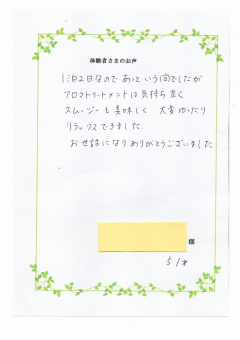 体験者さまのお声
1泊2日なのであっという間でしたが
アロマトリートメントは気持ち良く
スムージーも美味しく 大変ゆったり
リラックスできました
お世話になりありがとうございました
様
51才